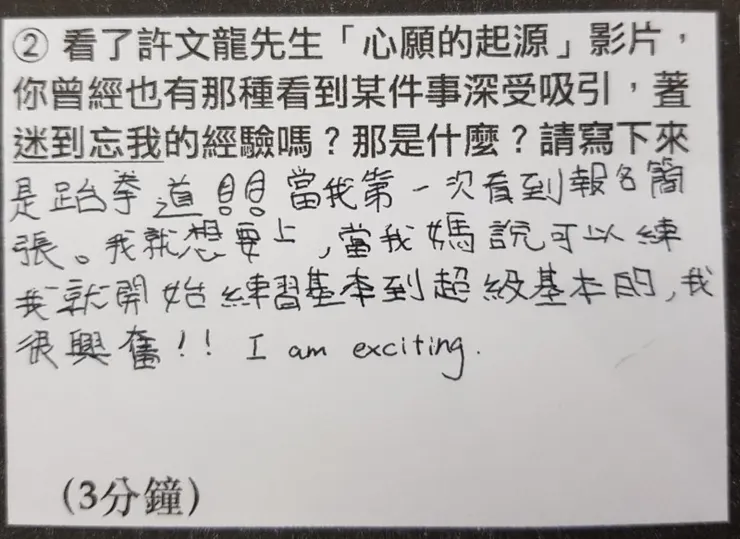 ② 看了許文龍先生「心願的起源」影片，
你曾經也有那種看到某件事深受吸引，著
迷到忘我的經驗嗎？那是什麼？請寫下來
是跆拳道!!當我第一次看到報名簡
張。我就想要上，當我媽說可以練
我就開始練習基本到超級基本的，我
很興奮!! I am exciting.
（3分鐘）